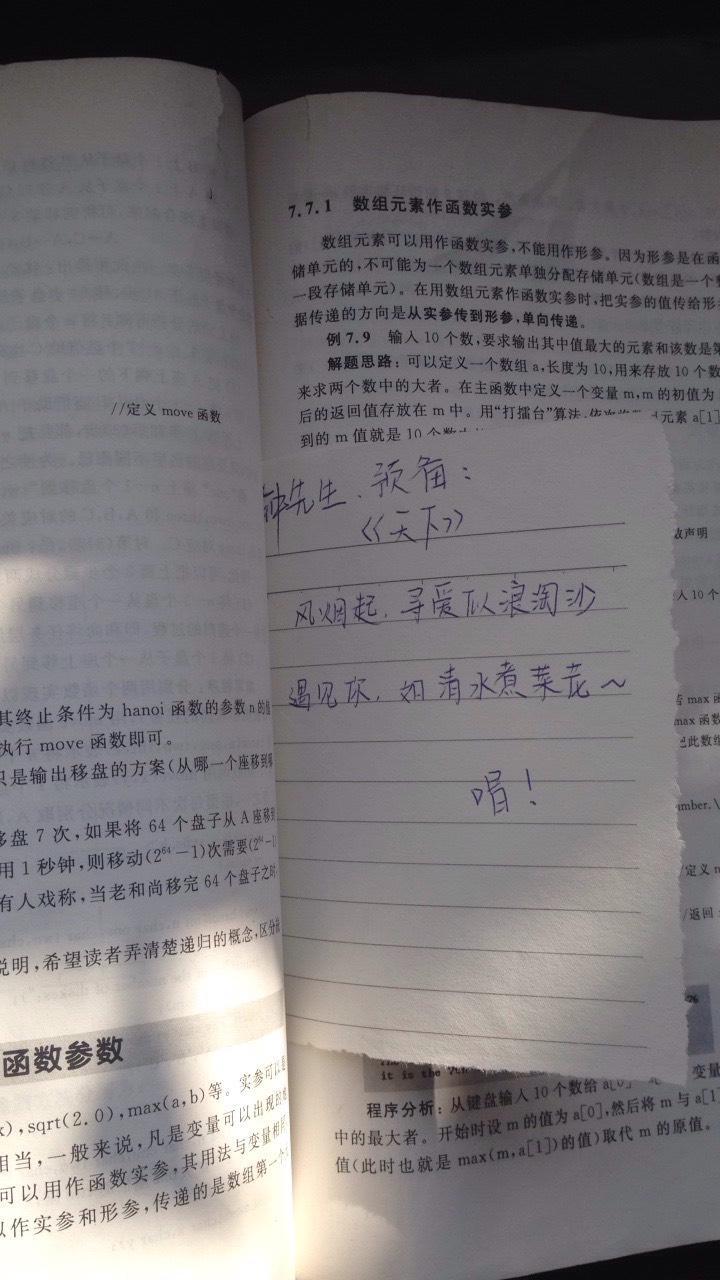 //定义 move 函数
其终止条件为 hanoi 函数的参数 n 的值
执行 move 函数即可。
只是输出移盘的方案(从哪一个座移到哪
移盘 7 次,如果将 64 个盘子从 A 座移到
用 1 秒钟,则移动(2⁶⁴－1)次需要(2⁶⁴－1)
有人戏称,当老和尚移完 64 个盘子之时,
说明,希望读者弄清楚递归的概念,区分
函数参数
),sqrt(2.0),max(a,b)等。实参可以是
相当,一般来说,凡是变量可以出现的
可以用作函数实参,其用法与变量相同
以作实参和形参,传递的是数组第一个
7.7.1 数组元素作函数实参
数组元素可以用作函数实参,不能用作形参。因为形参是在函
储单元的,不可能为一个数组元素单独分配存储单元(数组是一个
一段存储单元)。在用数组元素作函数实参时,把实参的值传给形
据传递的方向是从实参传到形参,单向传递。
例 7.9 输入 10 个数,要求输出其中值最大的元素和该数是第
解题思路：可以定义一个数组 a,长度为 10,用来存放 10 个数
来求两个数中的大者。在主函数中定义一个变量 m,m 的初值为
后的返回值存放在 m 中。用“打擂台”算法,依次将数 元素 a[1]
到的 m 值就是 10 个数
钟先生、预备：
《天下》
风烟起,寻爱似浪淘沙
遇见你,如清水煮菜花～
唱！
数声明
入 10 个
max 函
max 函数
此数组
umber.\
/定义
/返回
it is the
程序分析：从键盘输入 10 个数给 a[0] 变量
中的最大者。开始时设 m 的值为 a[0],然后将 m 与 a[1]
值(此时也就是 max(m,a[1])的值)取代 m 的原值。